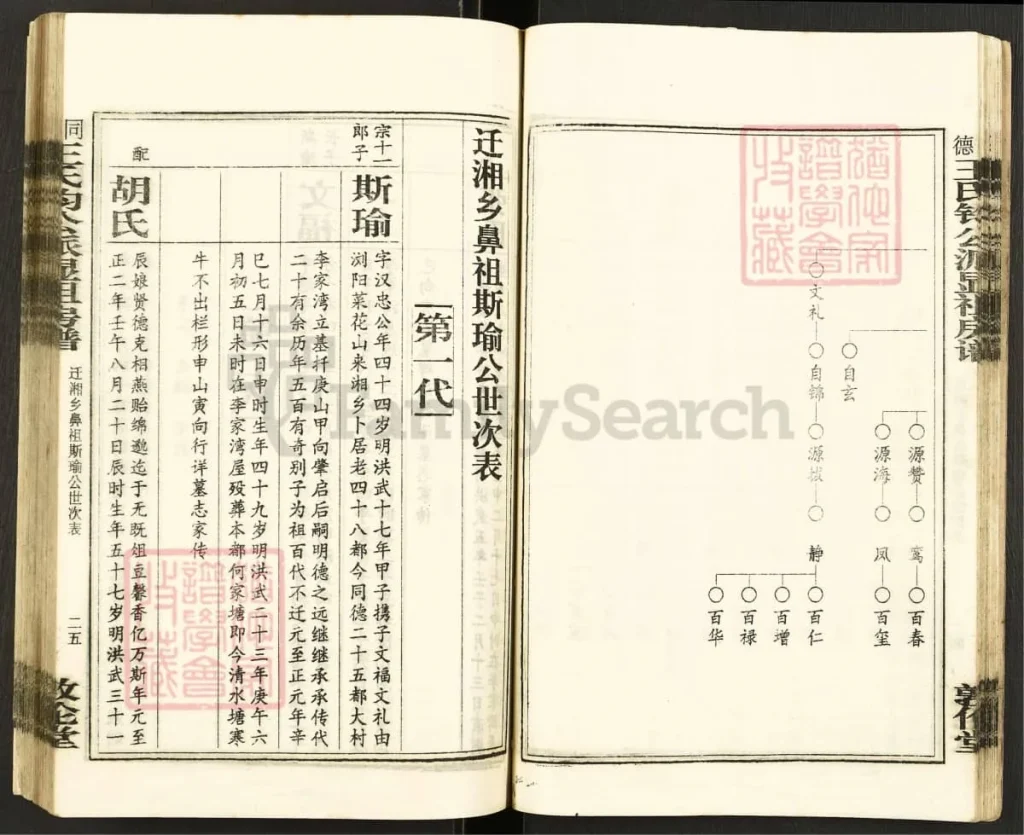 德
文礼
自锦
源椒
静
百仁
百增
百禄
百华
自玄
源赞
鸾
百春
源海
凤
百玺
FamilySearch
迁湘乡鼻祖斯瑜公世次表
第一代
宗十一郎子
斯瑜
字汉忠公年四十四岁明洪武十七年甲子携子文福文礼由
浏阳菜花山来湘乡卜居老四十八都今同德二十五都大村
李家湾立基扦庚山甲向肇启后嗣明德之远继继承承传代
二十有余历年五百有奇别子为祖百代不迁元至正元年辛
巳七月十六日申时生年四十九岁明洪武二十三年庚午六
月初五日未时在李家湾屋殁葬本都何家塘即今清水塘寒
牛不出栏形申山寅向行详墓志家传
配
胡氏
辰娘贤德克相燕贻绵邈迄于无既俎豆馨香亿万斯年元至
正二年壬午八月二十日辰时生年五十七岁明洪武三十一
同
迁湘乡鼻祖斯瑜公世次表
二五